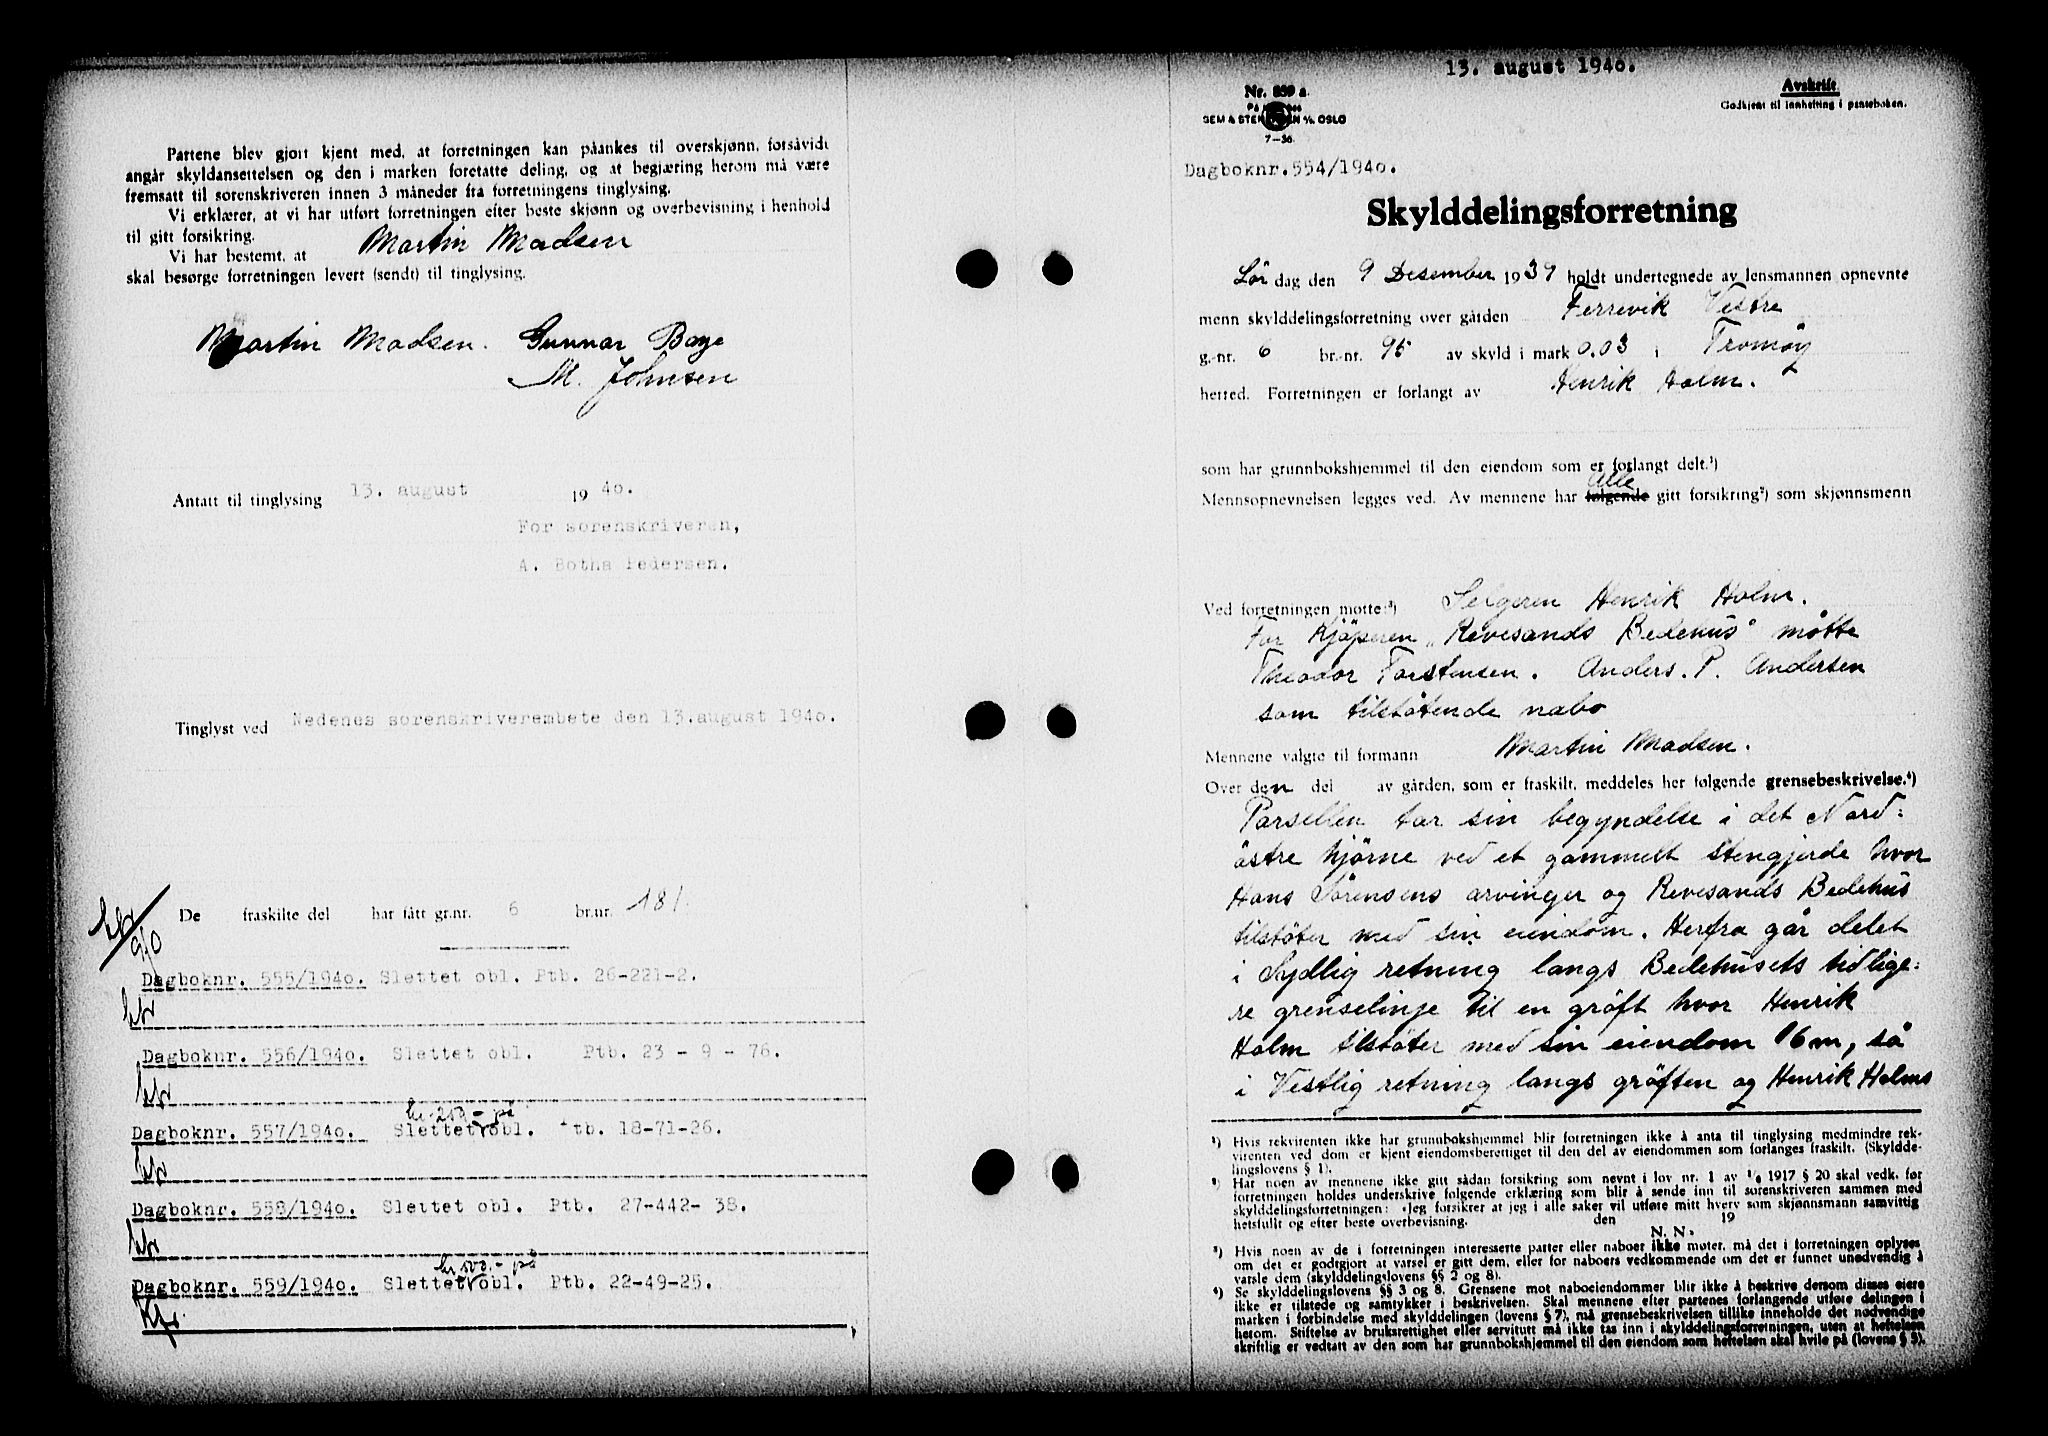 Partene blev gjort kjent med, at forretningen kan påankes til overskjønn, forsåvidt
angår skyldansettelsen og den i marken foretatte deling, og at begjæring herom må være
fremsatt til sorenskriveren innen 3 måneder fra forretningens tinglysing.
Vi erklærer, at vi har utført forretningen efter beste skjønn og overbevisning i henhold
til gitt forsikring.
Vi har bestemt, at Martin Madsen
skal besørge forretningen levert (sendt) til tinglysing.
Martin Madsen. Gunnar Bage
M. Johnsen
Antatt til tinglysing 13. august 1940.
For sorenskriveren,
A. Botha Pedersen.
Tinglyst ved Nedenes sorenskriverembete den 13.august 1940.
De fraskilte del har fått gr.nr. 6 br.nr. 181.
Dagboknr. 555/1940. Slettet obl. Ptb. 26-221-2.
Dagboknr. 556/1940. Slettet obl. Ptb. 23 - 9 - 76.
kr. 200.- på
Dagboknr. 557/1940. Slettet obl. Ptb. 18-71-26.
Dagboknr. 558/1940. Slettet obl. Ptb. 27-442-38.
kr. 500.- på
Dagboknr. 559/1940. Slettet obl. Ptb. 22-49-25.
13. august 1940.
Nr. 859 a
Avskrift
Godkjent til innhefting i panteboken.
OSLO
7-36
Dagboknr.554/1940.
Skylddelingsforretning
Lördag den 9 Desember 1939 holdt undertegnede av lensmannen opnevnte
menn skylddelingsforretning over gården Færrevik Vestre
g.-nr. 6 br.-nr. 95 av skyld i mark 0.03 i Tromöy
herred. Forretningen er forlangt av Henrik Holm.
som har grunnbokshjemmel til den eiendom som er forlangt delt.¹)
Alle
Mennsopnevnelsen legges ved. Av mennene har følgende gitt forsikring²) som skjønnsmenn
Ved forretningen møtte:³) Selgeren Henrik Holm.
For Kjöperen „Revesands Bedehus" møtte
Theodor Torstensen. Anders. P. Andersen
som tilstötende nabo
Mennene valgte til formann Martin Madsen.
Over den del av gården, som er fraskilt, meddeles her følgende grensebeskrivelse.⁴)
Parsellen tar sin begyndelse i det Nord=
östre hjörne ved et gammelt stengjerde hvor
Hans Sørensens arvinger og Revesands Bedehus
tilstöter med sin eiendom. Herfra går delet
i Sydlig retning langs Bedehusets tidlige=
re grenselinje til en gröft hvor Henrik
Holm tilstöter med sin eiendom 16 m, så
i Vestlig retning langs gröften og Henrik Holms
¹) Hvis rekvirenten ikke har grunnbokshjemmel blir forretningen ikke å anta til tinglysing medmindre rek-
virenten ved dom er kjent eiendomsberettiget til den del av eiendommen som forlanges fraskilt. (Skyldde-
lingslovens § 1).
²) Har noen av mennene ikke gitt sådan forsikring som nevnt i lov nr. 1 av 1/6 1917 § 20 skal vedk. før
forretningen holdes underskrive følgende erklæring som blir å sende inn til sorenskriveren sammen med
skylddelingsforretningen: «Jeg forsikrer at jeg i alle saker vil utføre mitt hverv som skjønnsmann samvittig
hetsfullt og efter beste overbevisning. den 19
N. N.»
³) Hvis noen av de i forretningen interesserte parter eller naboer ikke møter, må det i forretningen oplyses
om det er godtgjort at varsel er gitt dem, eller for naboers vedkommende om det er funnet unødvendig å
varsle dem (skylddelingslovens §§ 2 og 8).
⁴) Se skylddelingslovens §§ 3 og 8. Grensene mot naboeiendommer blir ikke å beskrive dersom disses eiere
ikke er tilstede og samtykker i beskrivelsen. Skal mennene efter partenes forlangende utføre delingen i
marken i forbindelse med skylddelingen (lovens § 7), må grensebeskrivelsen tillike inneholde det nødvendige
herom. Stiftelse av bruksrettighet eller servitutt må ikke tas inn i skylddelingsforretningen, uten at heftelsen
skriftlig er vedtatt av den som har grunnbokshjemmel til den eiendom som heftelsen skal hvile på (lovens § 5).